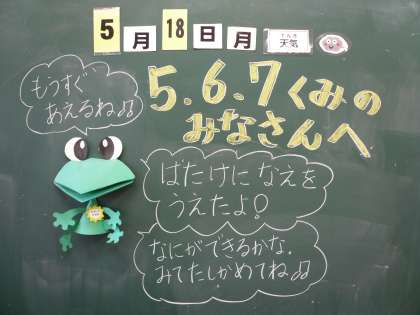 5月18日月 天気
てんき
5.6.7くみの
みなさんへ
もうすぐ
あえるね♫
はたけになえを
うえたよ!
なにができるかな.
みてたしかめてね♫